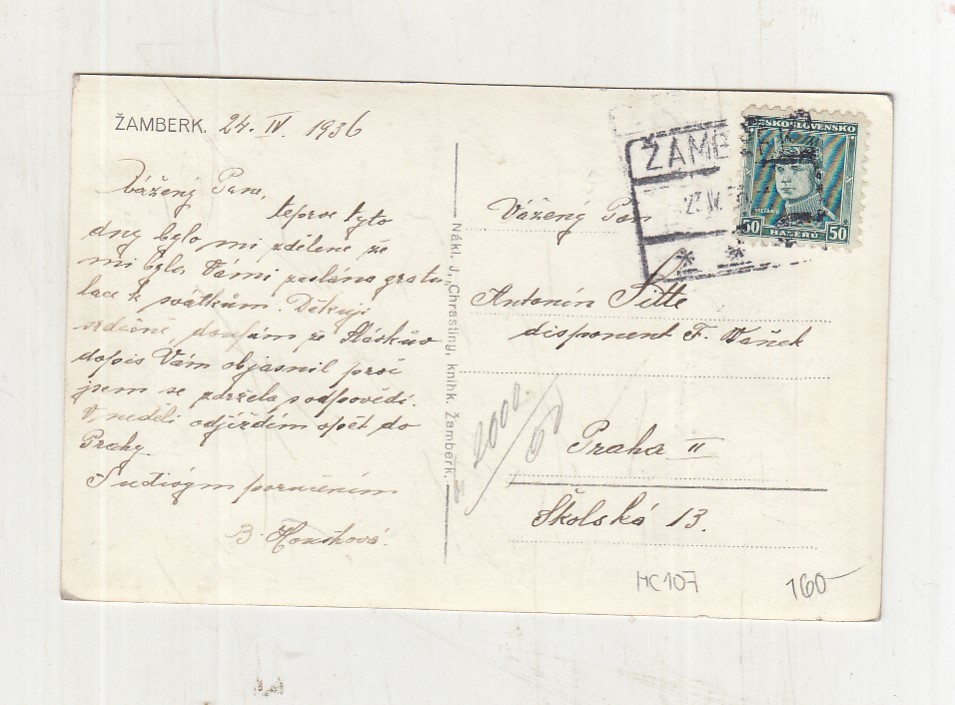 ŽAMBERK. 24. IV. 1936
Vážený Pane,
teprve tyto
dny bylo mi zdělené že
mi bylo Vámi zaslána gratu-
lace k svátkům. Děkuji
srdečně, doufám že
dopis Vám objasnil proč
jsem se zdržela s odpovědí.
V neděli odjíždím opět do
Prahy.
S uctivým poručením
B.
Nákl. J. Chrastiny, knihk. Žamberk.
ŽAMBERK
ČESKOSLOVENSKO
50 HALÉŘŮ 50
Vážený Pan
Antonín Sitte
disponent F. Vaněk
Praha II
Školská 13.
HC107
160-